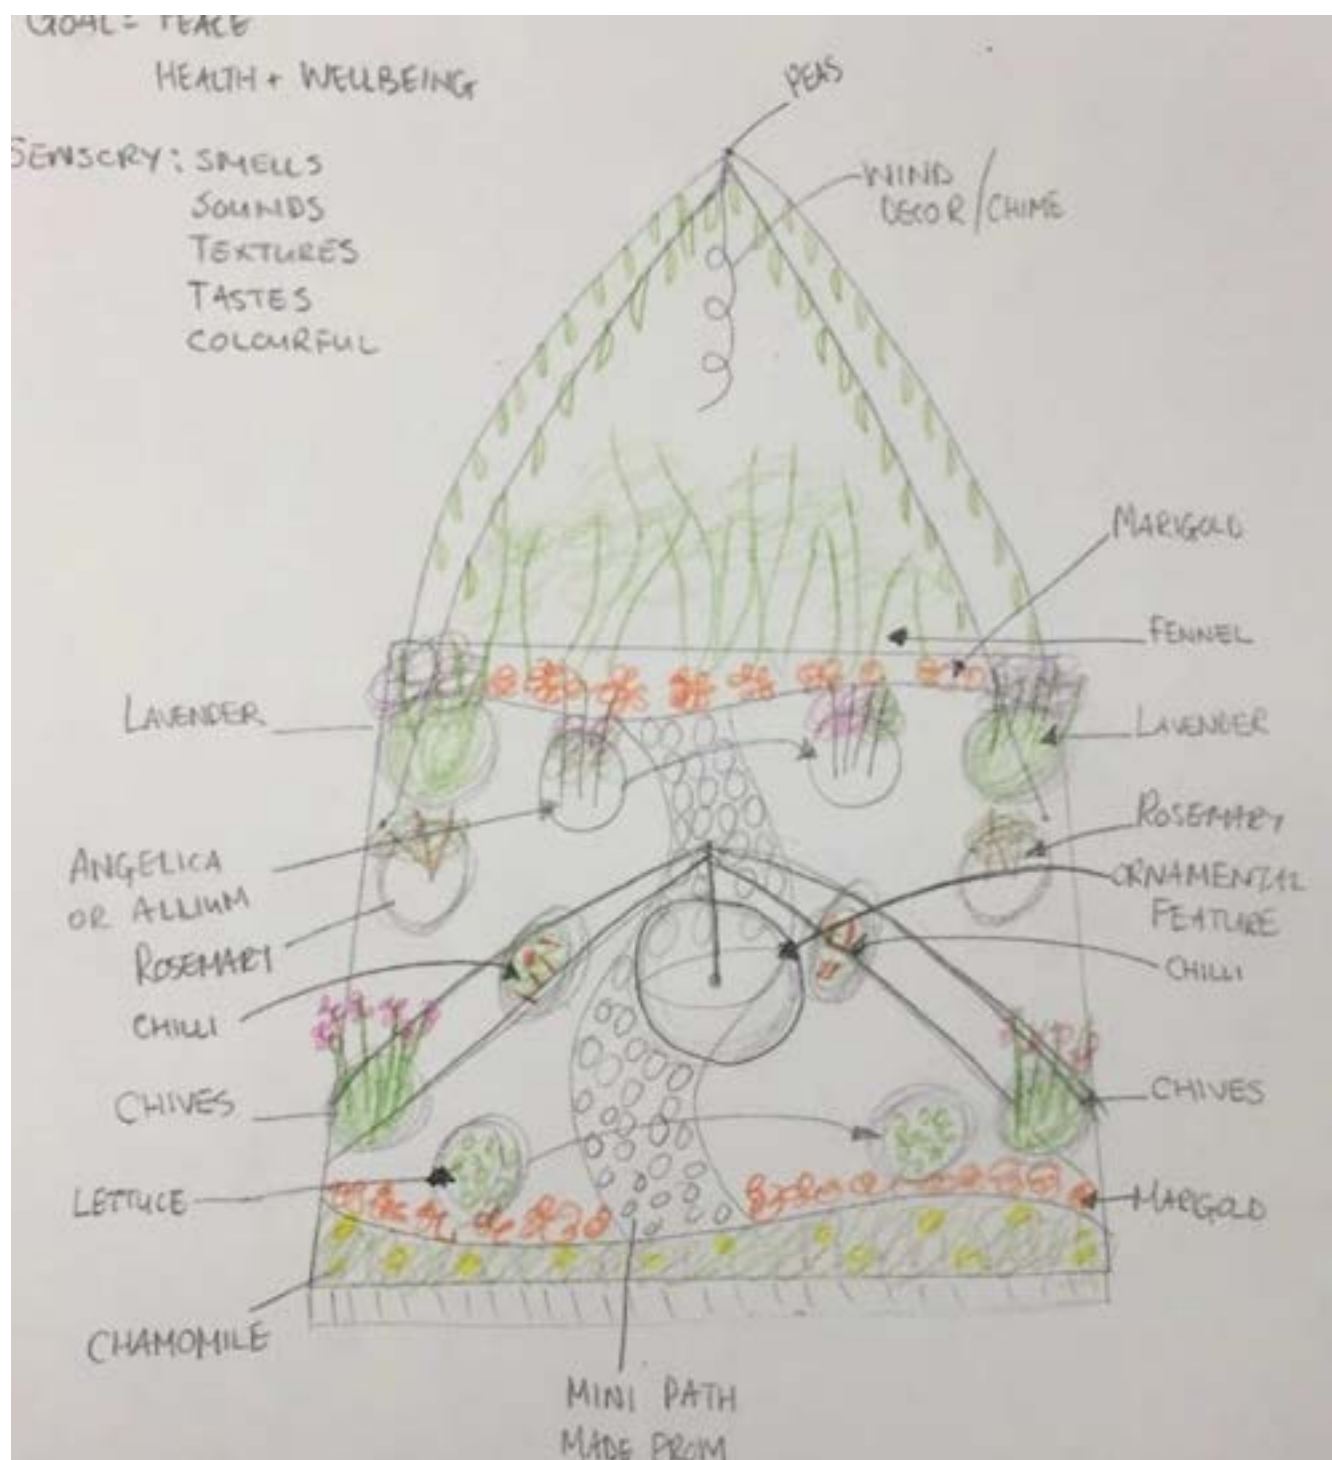 GOAL = PEACE
HEALTH + WELLBEING
SENSORY: SMELLS
SOUNDS
TEXTURES
TASTES
COLOURFUL
PEAS
WIND
DECOR/CHIME
MARIGOLD
FENNEL
LAVENDER
LAVENDER
ROSEMARY
ANGELICA
OR ALLIUM
ORNAMENTAL
FEATURE
ROSEMARY
CHILLI
CHILLI
CHIVES
CHIVES
LETTUCE
MARIGOLD
CHAMOMILE
MINI PATH
MADE FROM